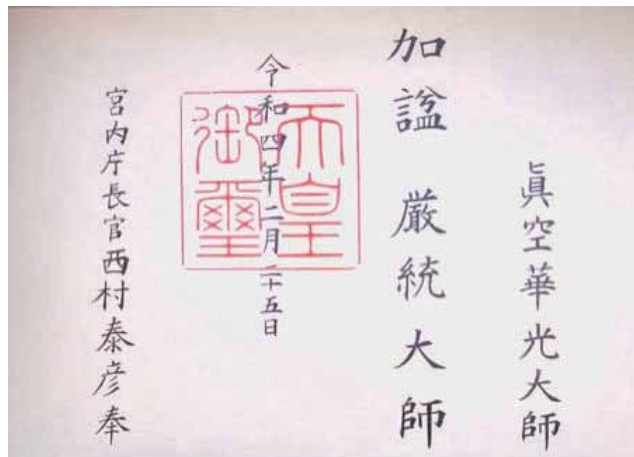 眞空華光大師
加諡 厳統大師
令和四年二月二十五日
天皇
御璽
宮内庁長官西村泰彦奉